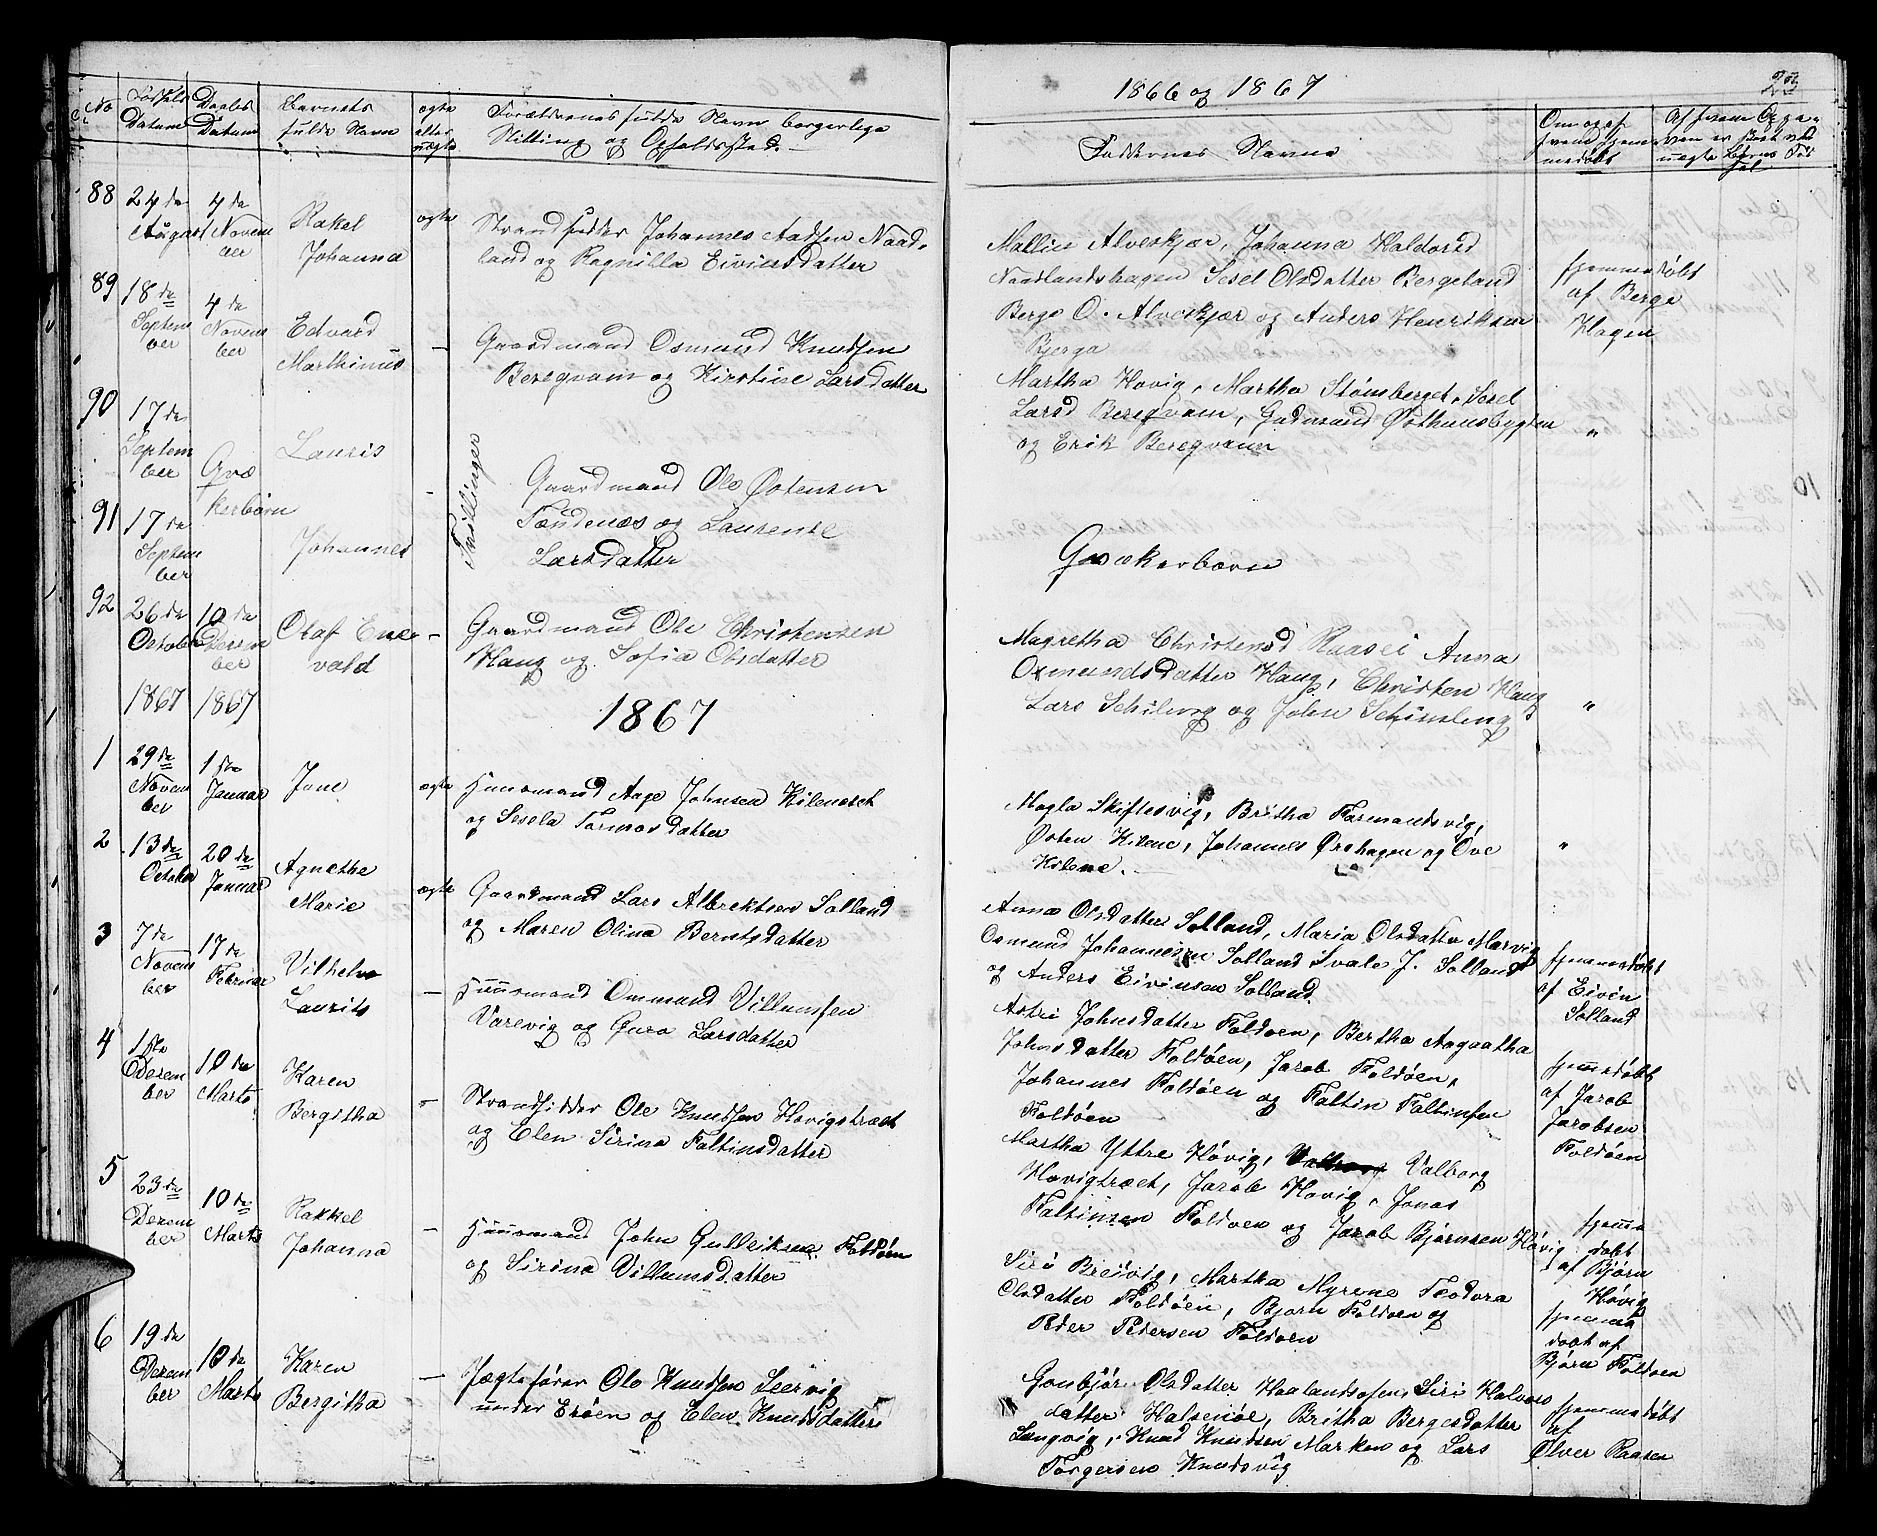 1866 og 1867
No
Fødsels Datum
Daabs Datum
Barnets fulde Navn
ægte eller uægte
Forældrenes fulde Navn borgerlige
Stilling og Opholdssted.
Faddernes Navne
Om og af
hvem hjem-
medøbt
88
24de August
4de November
Rakel
Johanna
ægte
Strandsidder Johannes Aadsen Naad-
land og Ragnilla Eivindsdatter
Mallin Alveskjær, Johanna Haldorsd
Naadlandshagen Sesel Olsdatter Bergeland
Berge O. Alveskjær og Anders Henriksen
Bjerga
hjemmedøbt
af Berge
Hagen
89
18de September
4de November
Edvard
Marthinus
Gaardmand Osmund Knudsen
Beregvam og Kirstine Larsdatter
Martha Hovig, Martha Stømberget, Sesel
Larsd Beregvam, Gudmund Østhunsbygden
og Erik Beregvam
"
90
17de September
Lauris
Qvækerbørn
Tvillinger
Gaardmand Ole Østensen
Tændenæs og Laurense
Larsdatter
91
17de September
Johannes
Qvækerbørn
92
26de October
10de December
Olaf Ene-
vald
Gaardmand Ole Christensen
Haug og Sofia Olsdatter
Magretha Christensd Raasei Anna
Osmundsdatter Haug, Christen Haug
Lars Schibevg og John Schimling
"
1867 1867
1867
1
29de November
1ste Januar
Jone
ægte
Huusmand Aage Johnsen Kileneset
og Sesela Tormosdatter
Magla Skiftesvig, Britha Formandsvig,
Østen Kilene, Johannes Ørehagen og Ove
Kilene.
"
2
13de October
20de Januar
Agnethe
Marie
ægte
Gaardmand Lars Albrektsen Solland
og Maren Olina Berntsdatter
Anna Olsdatter Solland, Maria Olsdatter Marvig
Osmund Johannesen Solland Svale J. Solland
og Anders Eivinsen Solland.
hjemmedøbt
af Eivin
Solland
3
7de November
17de Februar
Vilhelm
Laurits
Huusmand Ommund Villumsen
Varevig og Guro Larsdatter
Astri Johnsdatter Foldøen, Bertha Aagaatha
Johnsdatter Foldøen, Jacob Foldøen,
Johannes Foldøen og Faltin Faltinsen
Foldøen
hjemmedøbt
af Jacob
Jacobsen
Foldøen
4
1ste December
10de Marts
Karen
Bergitha
Strandsidder Ole Knudsen Hovigstræet
og Elen Sirina Faltinsdatter
Martha Yttre Høvig, Valborg
Hovigtræet, Jacob Hovig, Jonas
Faltinsen Foldøen og Jacob Bjørnsen Høvig
hjemme
døbt
af Bjørn
Høvig
5
23de December
10de Marts
Rakkel
Johanna
Huusmand John Gulleiksen Foldøen
og Sirina Villumsdatter
Siri Breivig, Martha Myrene Teodora
Olsdatter Foldøen, Bjørn Foldøen og
Peder Pedersen Foldøen
hjemme
døbt af
Bjørn Foldøen
6
19de December
10de Marts
Karen
Bergitha
Jægtefører Ole Knudsen Leervig
under Erøen og Elen Knudsdatter
Gunbjør Olsdatter Haalandsosen Siri Halvors
datter Halsenøe, Britha Bergesdatter
Langvig, Knud Knudsen Marken og Lars
Torgersen Knudsvig
hjemmedøbt
af
Ølver Raasen